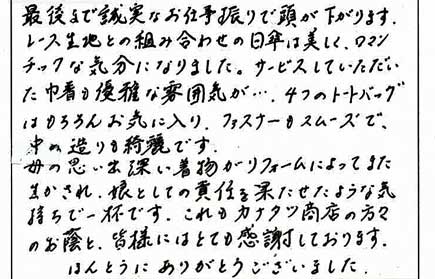 最後まで誠実なお仕事振りで頭が下がります.
レース生地との組み合わせの日傘は美しく、ロマン
チックな気分になりました。サービスしていただい
た巾着も優雅な雰囲気が…. 4つのトートバッグ
はもちろんお気に入り. ファスナーもスムーズで、
中の造りも綺麗です.
母の思い出深い着物がリフォームによってまた
生かされ. 娘としての責任を果たせたような気
持ちで一杯です. これもカナタツ商店の方々
のお蔭と、皆様にはとても感謝しております.
ほんとうにありがとうございました.